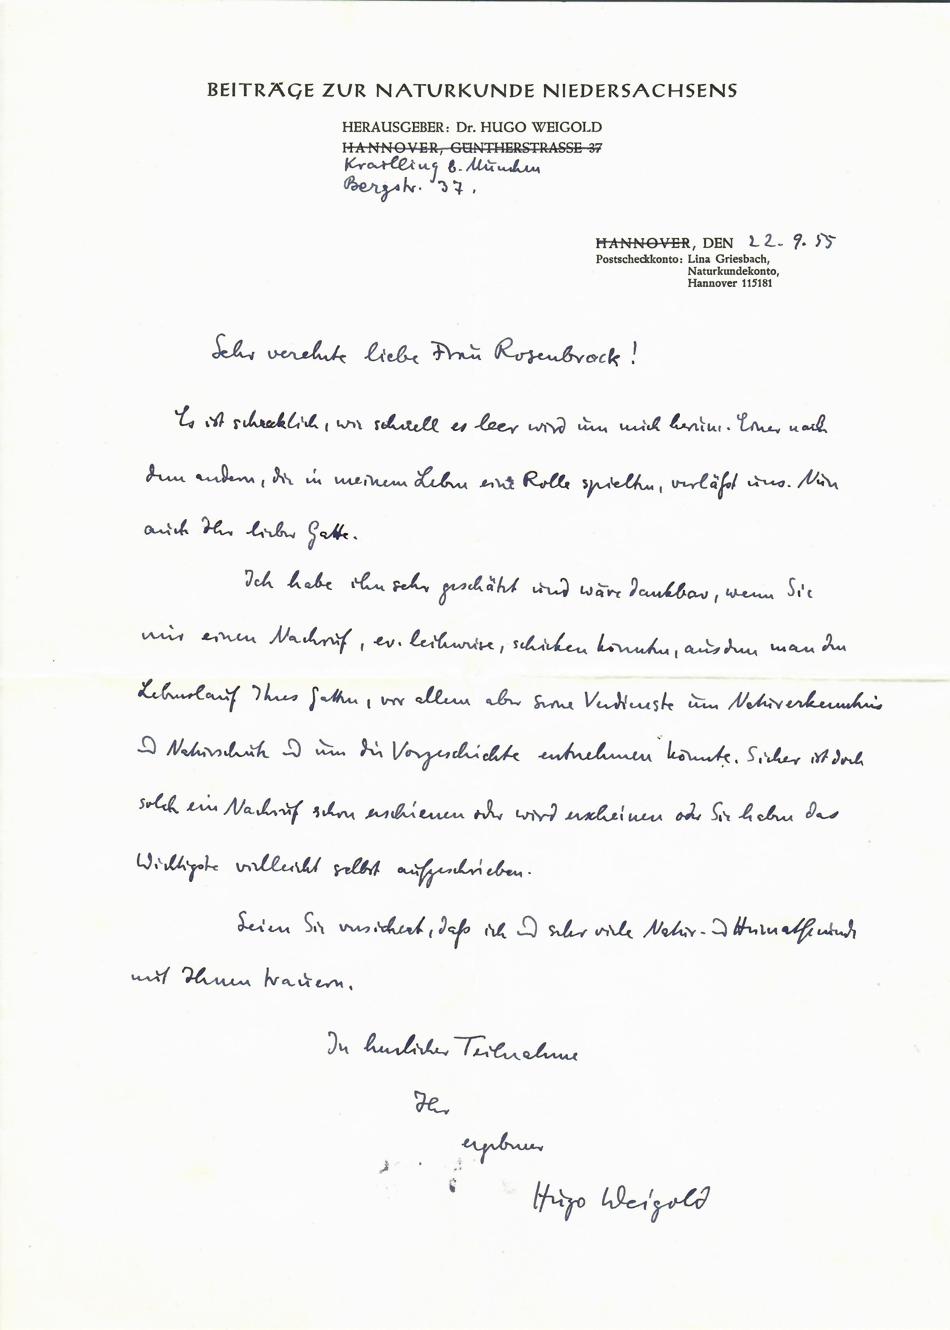 BEITRÄGE ZUR NATURKUNDE NIEDERSACHSENS
HERAUSGEBER: Dr. HUGO WEIGOLD
HANNOVER, GÜNTHERSTRASSE 37
Krailling b. München
Bergstr. 37.
HANNOVER, DEN 22.9.55
Postscheckkonto: Lina Griesbach,
Naturkundekonto,
Hannover 115181
Sehr verehrte liebe Frau Rosenbrock!
Es ist schrecklich, wie schnell es leer wird um mich herum. Einer nach
dem andern, die in meinem Leben eine Rolle spielten, verläßt uns. Nun
auch Ihr lieber Gatte.
Ich habe ihn sehr geschätzt und wäre dankbar, wenn Sie
mir einen Nachruf, ev. leihweise, schicken könnten, aus dem man den
Lebenslauf Ihres Gatten, vor allem aber seine Verdienste um Naturerkenntnis
u Naturschutz u um die Vorgeschichte entnehmen könnte. Sicher ist doch
solch ein Nachruf schon erschienen oder wird erscheinen oder Sie haben das
Wichtigste vielleicht selbst aufgeschrieben.
Seien Sie versichert, daß ich u sehr viele Natur- u Heimatfreunde
mit Ihnen trauern.
In herzlicher Teilnahme
Ihr
ergebener
Hugo Weigold